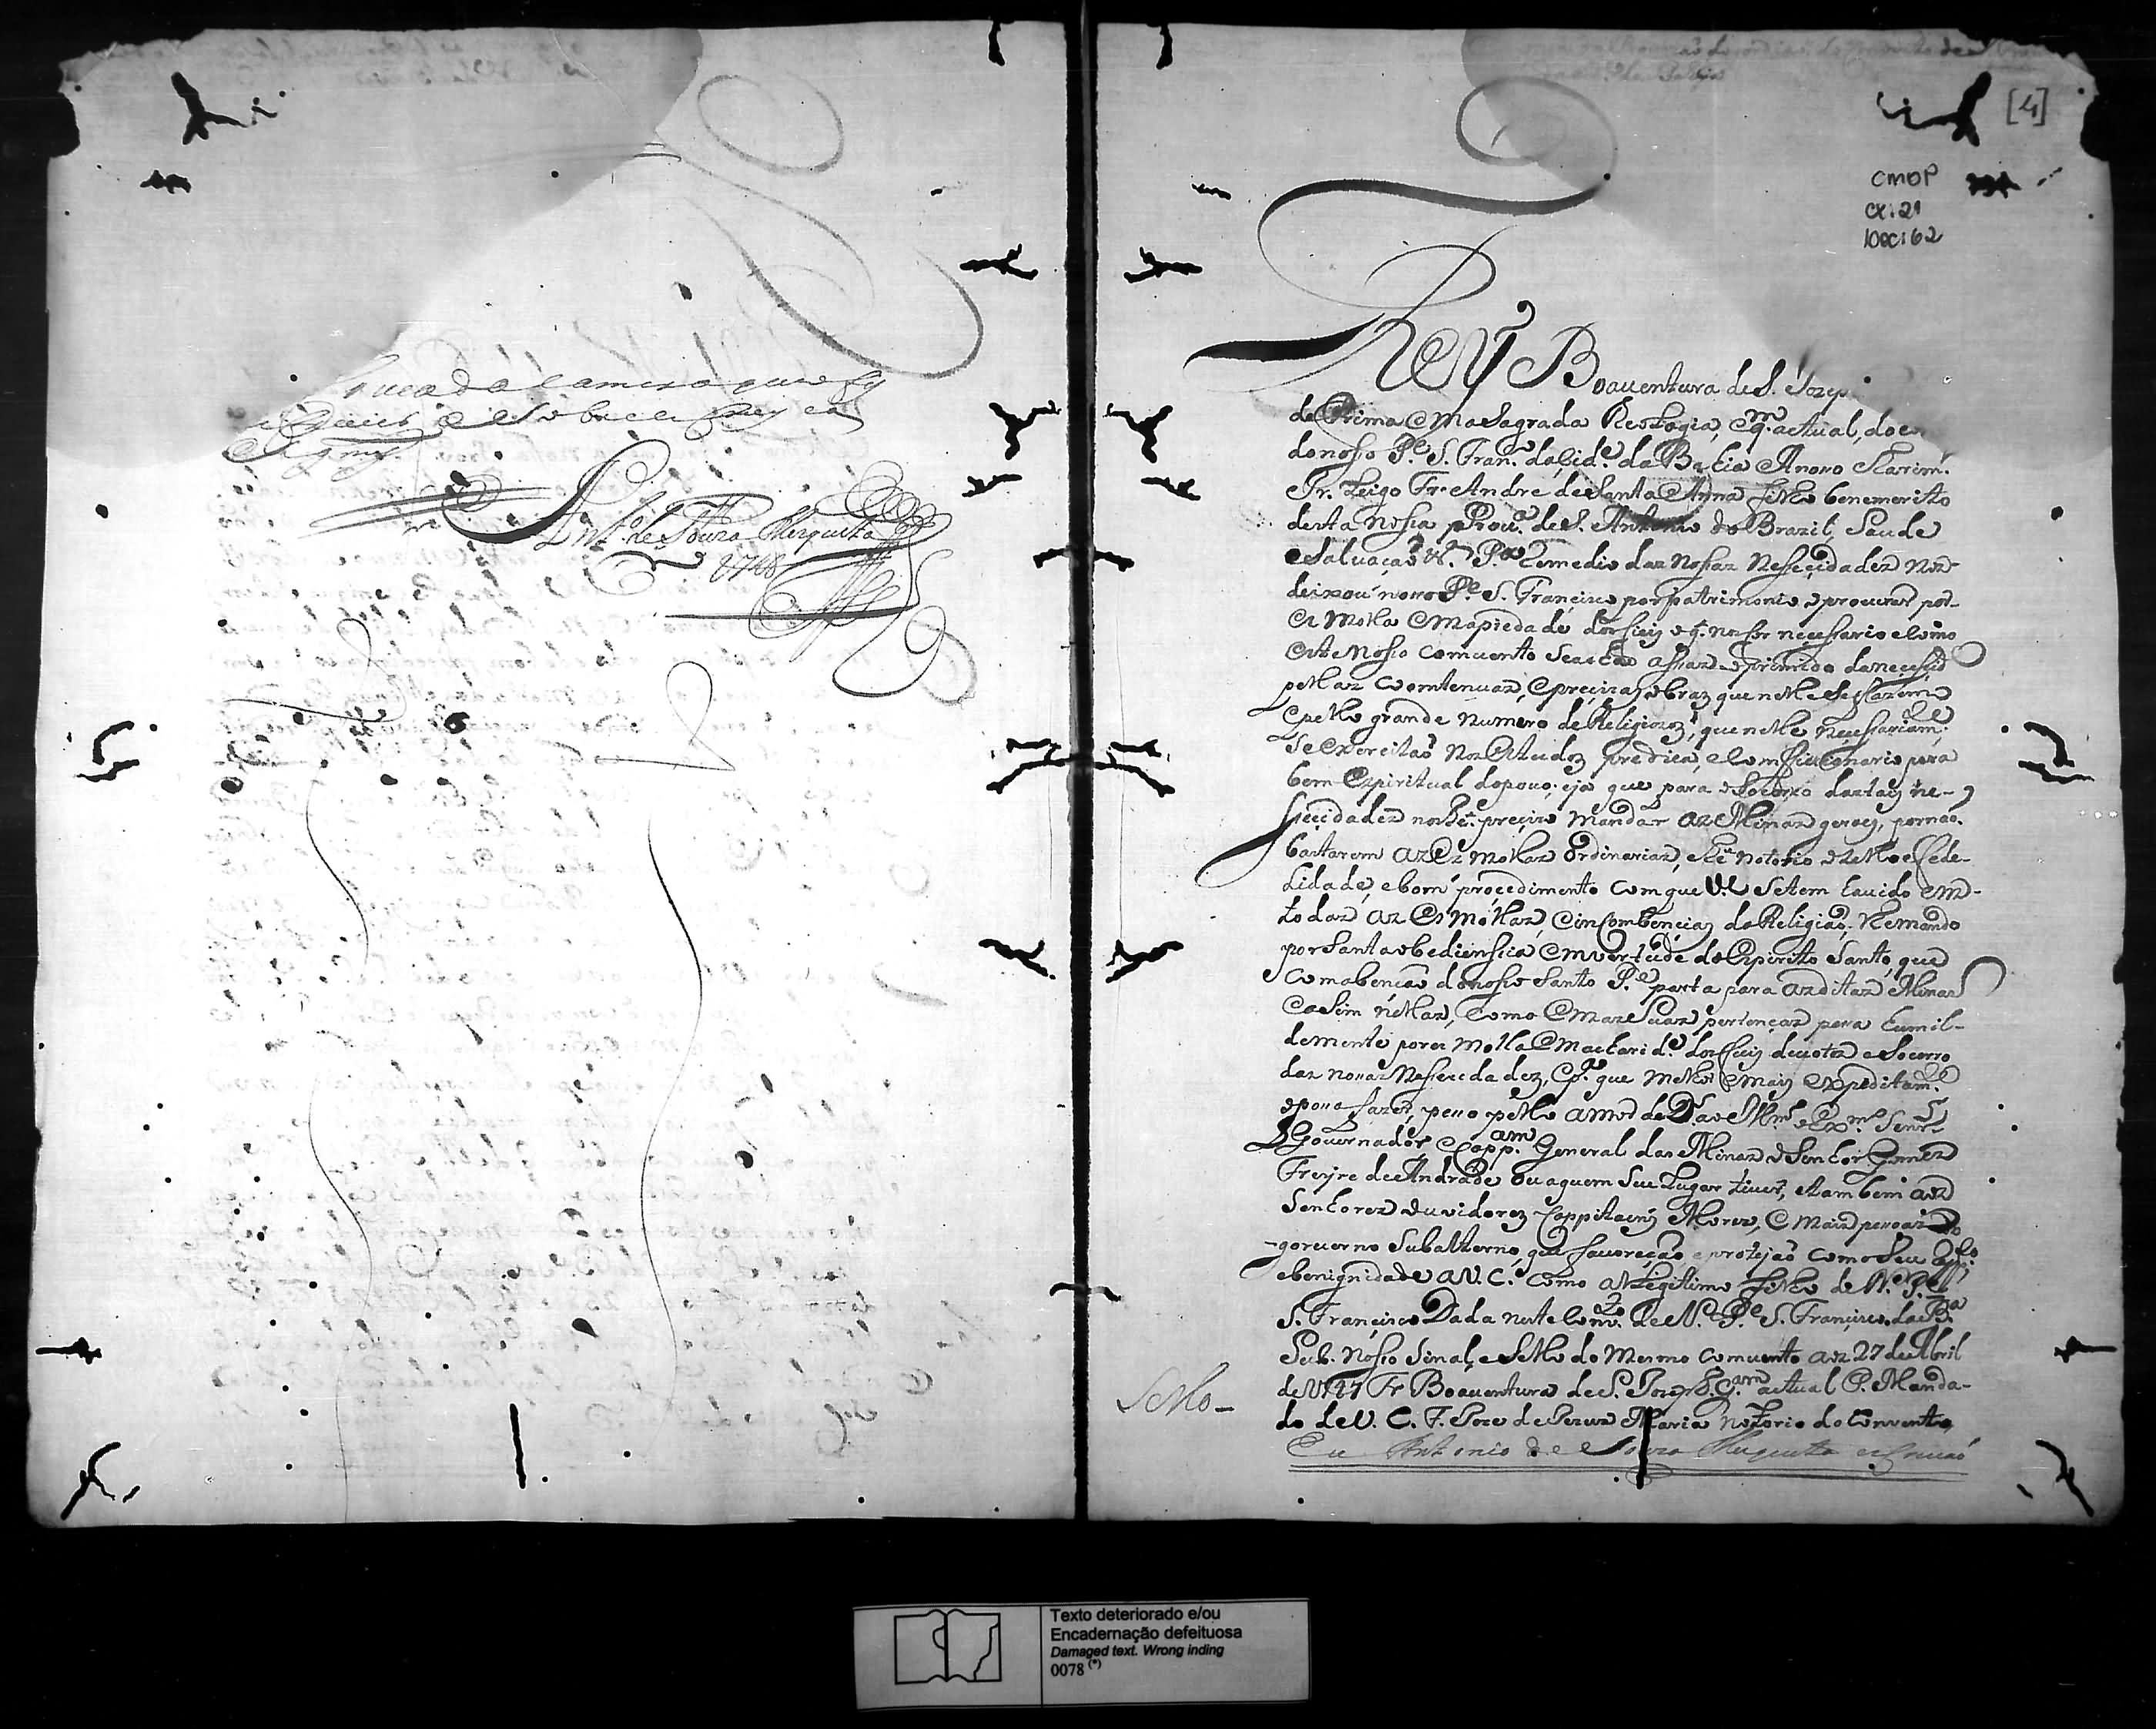 Ant.º de Souza Mesquita
1748
[4]
CMOP
cx: 21
Doc: 62
Frey Boaventura de S. Jozeph
de Prima em a Sagrada Theologia, e g.m actual, do
do nosso P.e S. Fran.co da Cid.e da Bahia Ao novo Carissimo
Ir. Leigo Fr. Andre de Santa Anna filho benemerito
desta nossa Prov.a de S. Antonio do Brazil, Saude
e Salvaçaõ &.a P.a Remedio das Nossas Nesecidades nos
deixou nosso P.e S. Francisco por patrimonio o procurar por
esmolla em a piedade dos fieis o q. nos for necessario e como
este Nosso comvento se acha oprimido da
pellas comtenuas, e precizas obras que nelle se fazem
e pello grande numero de Religiozos, que nelle necessariam.te
se exercitaõ nos estudos predica, e comficionario para
bem espiritual do povo; e ja que para o Socorro das tais ne-
secidades nos he precizo mandar as Minas geraes, por naõ
bastarem as esmollas ordinarias, e he notorio o zello e fede-
lidade, e bom procedimento com que V.C. se tem havido em
todas as esmollas, e incombencias da Religiaõ. Lhe mando
por Santa obediensia em vertude do Espirito Santo, que
com a bençaõ do nosso Santo P.e parta para as ditas Minas
e asim nellas, como em as suas pertenças peça humil-
demente por esmolla em a charid.e dos fieis devotos o Socorro
das nossas Nesecidades, e p.a que melhor e mais expeditam.te
o possa fazer, peço pello amor de D.s ao Ill.mo e Ex.mo Senr.
Governador e Capp.am General das Minas o Senhor Gomes
Freyre de Andrade ou a quem seu Lugar tiver, e tambem aos
Senhores ouvidores Cappitaens Mores, e mais pessoas do
governo Subalterno, que favoreçaõ e protejaõ com o seu
e benignidade a V. C. como a Legitimo filho de N. P.e
S. Francisco Dada neste Conv.to de N. P.e S. Francisco da B.a
Sub. Nosso Sinal, e Sello do Mesmo comvento aos 27 de Abril
de 1747 Fr Boaventura de S. Jozeph G.am actual P. Manda-
do de V. C. F. Joze de Jezus Maria Notario do Convento
Sello -
Eu Antonio de Souza Mesquita escrivaõ
Texto deteriorado e/ou
Encadernação defeituosa
Damaged text. Wrong inding
0078 (*)